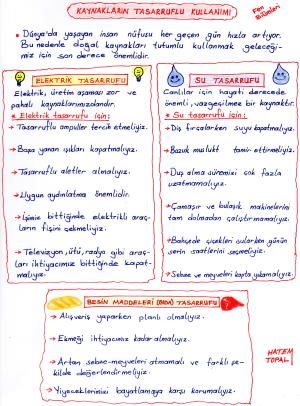 KAYNAKLARIN TASARRUFLU KULLANIMI
Fen Bilimleri
• Dünya'da yaşayan insan nüfusu her geçen gün hızla artıyor.
Bu nedenle doğal kaynakları tutumlu kullanmak geleceği-
miz için son derece önemlidir.
ELEKTRİK TASARRUFU
Elektrik, üretim aşaması zor ve
pahalı kaynaklarımızdandır.
* Elektrik tasarrufu için;
→ Tasarruflu ampuller tercih etmeliyiz.
→ Boşa yanan ışıkları kapatmalıyız.
→ Tasarruflu aletler almalıyız.
→ Uygun aydınlatma önemlidir.
→ İşimiz bittiğinde elektrikli araç-
ların fişini çekmeliyiz.
→ Televizyon, ütü, radyo gibi araç-
ları ihtiyacımız bittiğinde kapat-
malıyız.
SU TASARRUFU
Canlılar için hayati derecede
önemli, vazgeçilmez bir kaynaktır.
* Su tasarrufu için;
→ Diş fırçalarken suyu kapatmalıyız.
→ Bozuk musluk tamir ettirmeliyiz.
→ Duş alma süremizi çok fazla
uzatmamalıyız.
→ Çamaşır ve bulaşık makinelerini
tam dolmadan çalıştırmamalıyız.
→ Bahçede çiçekleri sularken günün
serin saatlerini seçmeliyiz.
→ Sebze ve meyveleri kapta yıkamalıyız.
BESİN MADDELERİ (BESİN) TASARRUFU
→ Alışveriş yaparken planlı olmalıyız.
→ Ekmeği ihtiyacımız kadar almalıyız.
→ Artan sebze-meyveleri atmamalı ve farklı şe-
kilde değerlendirmeliyiz.
→ Yiyeceklerimizi bayatlamaya karşı korumalıyız.
HATEM
TOPAL